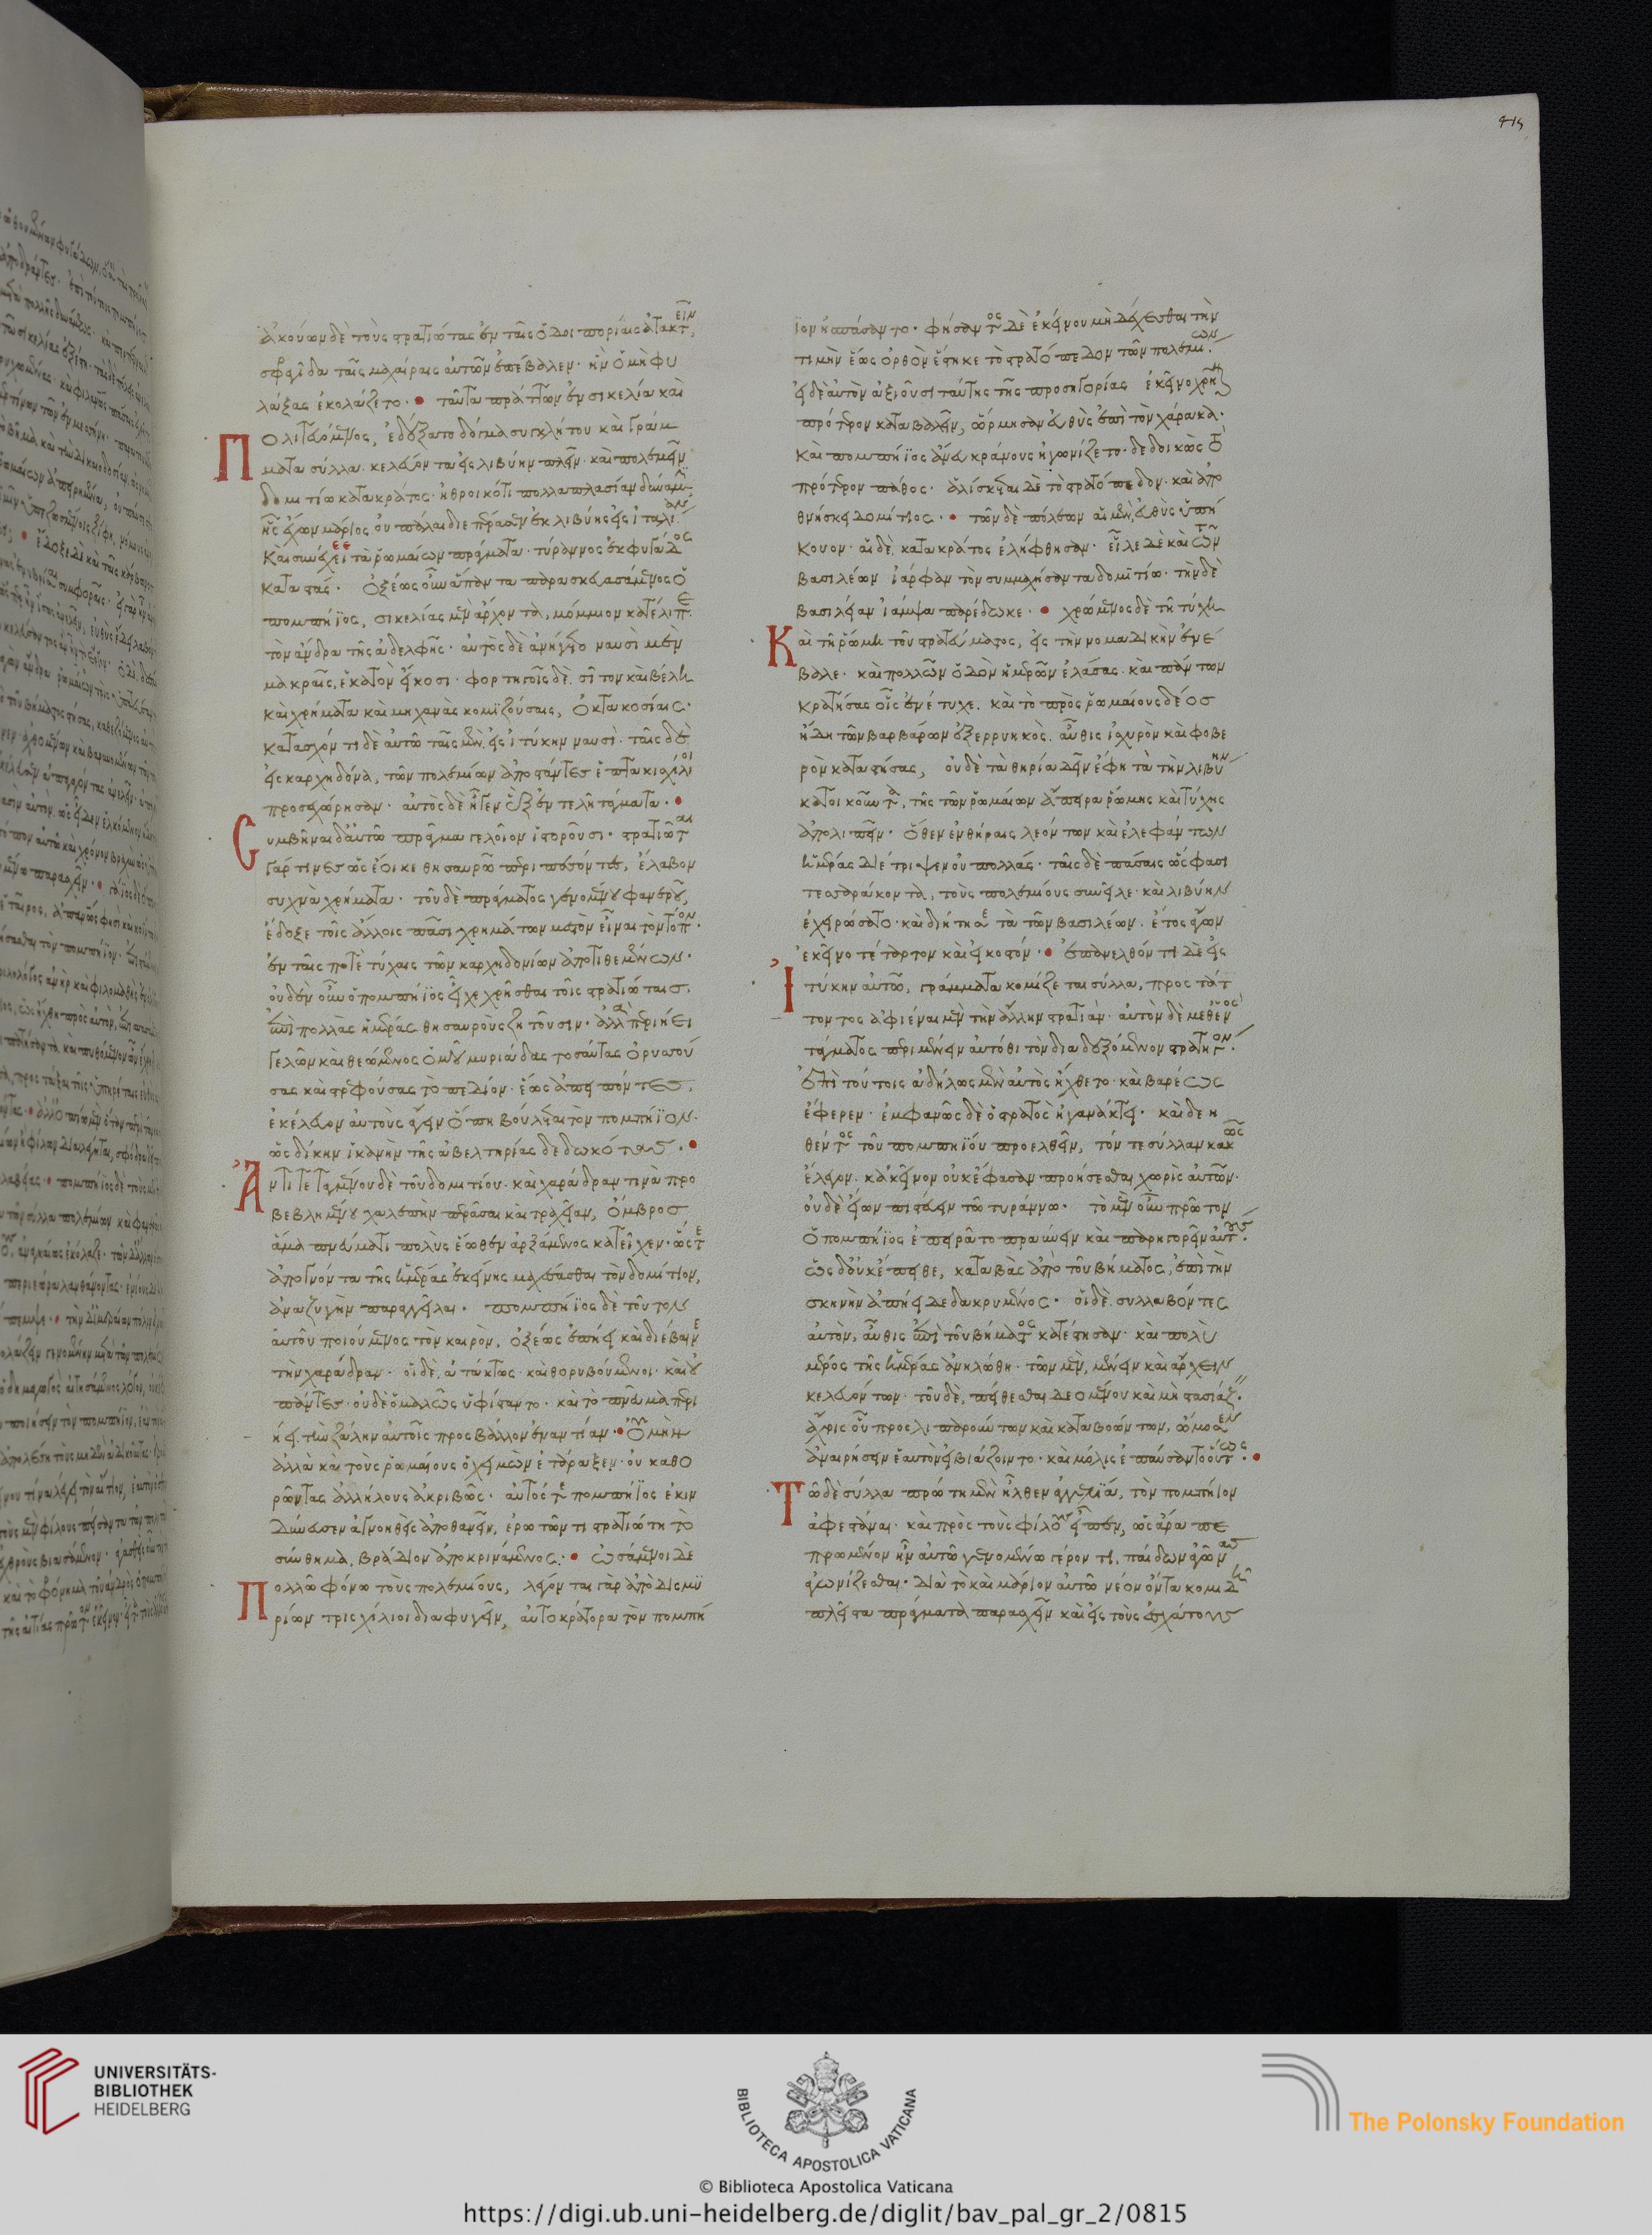 ἀκούων δὲ τοὺς στρατιώτας ἐν ταῖς ὁδοιπορίαις ἀτακτεῖν,
σφραγῖδα ταῖς μαχαίραις αὐτῶν ἐπέβαλεν· ἣν ὁ μὴ φυ
λάξας ἐκολάζετο. ταῦτα πράττων ἐν σικελία καὶ
Πολιτευόμενος, ἐδέξατο δόγμα συγκλήτου καὶ γράμ
ματα σύλλα. κελεύοντα εἰς λιβύην πλεῖν· καὶ πολεμεῖν
δομιτίω κατακράτος· ἠθροικότι πολλαπλασίαν δύναμιν
ἧς ἔχων μάριος οὐ πάλαι διεπέρασεν ἐκ λιβύης εἰς ἰταλίαν
Καὶ συνέχεε τὰ ῥωμαίων πράγματα· τύραννος ἐκ φυγάδος
καταστάς. ὀξέως οὖν ἅπαντα παρασκευασάμενος ὁ
πομπήϊος, σικελίας μὲν ἄρχοντα, μόμμιον κατέλιπε
τὸν ἄνδρα τῆς ἀδελφῆς· αὐτὸς δὲ ἀνήγετο ναυσὶ μὲν
μακραῖς, ἑκατὸν εἴκοσι· φορτηγοῖς δὲ σῖτον καὶ βέλη
καὶ χρήματα καὶ μηχανὰς κομιζούσαις, ὀκτακοσίαις·
κατασχόντι δὲ αὐτῶ ταῖς μὲν εἰς ἰτύκην ναυσὶ· ταῖς δὲ
εἰς καρχηδόνα, τῶν πολεμίων ἀποστάντες ἑπτακισχίλιοι
προσεχώρησαν· αὐτὸς δὲ ἦγεν ἓξ ἐντελῆ τάγματα·
Συμβῆναι δ' αὐτῶ πρᾶγμα γελοῖον ἱστοροῦσι· στρατιῶται
γάρ τινες ὡς ἔοικε θησαυρῶ περιπεσόντες, ἔλαβον
συχνὰ χρήματα· τοῦ δὲ πράγματος γενομένου φανεροῦ,
ἔδοξε τοῖς ἄλλοις πᾶσι χρημάτων μεστὸν εἶναι τὸν τόπον·
ἐν ταῖς ποτὲ τύχαις τῶν καρχηδονίων ἀποτιθεμένων·
οὐδὲν οὖν ὁ πομπήϊος εἶχε χρῆσθαι τοῖς στρατιώταις,
ἐπὶ πολλὰς ἡμέρας θησαυροὺς ζητοῦσιν· ἀλλὰ περιήει
γελῶν καὶ θεώμενος ὁμοῦ μυριάδας τοσαύτας ὀρυττού
σας καὶ στρεφούσας τὸ πεδίον· ἕως ἀπειπόντες,
ἐκέλευον αὐτοὺς ἄγειν ὅπη βούλεται τὸν πομπήϊον·
ὡς δίκην ἱκανὴν τῆς ἀβελτηρίας δεδωκότας·
Ἀντιτεταγμένου δὲ τοῦ δομιτίου· καὶ χαράδραν τινὰ προ
βεβλημένου χαλεπὴν περᾶσαι καὶ τραχεῖαν, ὄμβρος
ἅμα πνεύματι πολὺς ἕωθεν ἀρξάμενος κατεῖχεν· ὥστε
ἀπογνόντα τῆς ἡμέρας ἐκείνης μαχέσασθαι τὸν δομίτιον,
ἀναζυγὴν παραγγεῖλαι· πομπήϊος δὲ τοῦτον
αὑτοῦ ποιούμενος τὸν καιρὸν, ὀξέως ἐπήει καὶ διέβαινε
τὴν χαράδραν· οἱ δὲ, ἀτάκτως καὶ θορυβούμενοι· καὶ οὐ
πάντες· οὐδὲ ὁμαλῶς ὑφίσταντο· καὶ τὸ πνεῦμα περι
ήει τὴν ζάλην αὐτοῖς προσβάλλον ἐναντίαν· οὐ μὴν
ἀλλὰ καὶ τοὺς ῥωμαίους ὁ χειμὼν ἐτάραξεν· οὐ καθο
ρῶντας ἀλλήλους ἀκριβῶς· αὐτός τε πομπήϊος ἐκιν
δύνευσεν ἀγνοηθεὶς ἀποθανεῖν, ἐρωτῶντι στρατιώτη τὸ
σύνθημα, βράδιον ἀποκρινάμενος· ὠσάμενοι δὲ
Πολλῶ φόνω τοὺς πολεμίους, λέγονται γὰρ ἀπὸ δισμυ
ρίων τρισχίλιοι διαφυγεῖν, αὐτοκράτορα τὸν πομπή
ϊον ἠσπάσαντο· φήσαντος δὲ ἐκείνου μὴ δέχεσθαι τὴν
τιμὴν ἕως ὀρθὸν ἕστηκε τὸ στρατόπεδον τῶν πολεμίων·
εἰ δὲ αὐτὸν ἀξιοῦσι ταύτης τῆς προσηγορίας ἐκεῖνο χρῆναι
πρότερον καταβαλεῖν, ὥρμησαν εὐθὺς ἐπὶ τὸν χάρακα·
Καὶ πομπήϊος ἄνευ κράνους ἠγωνίζετο· δεδοικὼς τὸ
πρότερον πάθος· ἁλίσκεται δὲ τὸ στρατόπεδον· καὶ ἀπο
θνήσκει δομίτιος· τῶν δὲ πόλεων αἱ μὲν, εὐθὺς ὑπή
κουον· αἱ δὲ, κατακράτος ἐλήφθησαν· εἷλε δὲ καὶ τῶν
βασιλέων ἰάρφαν τὸν συμμαχήσαντα δομιτίω· τὴν δὲ
βασιλείαν ἰάμψα παρέδωκε· χρώμενος δὲ τῆ τύχη
Καὶ τῆ ῥώμη τοῦ στρατεύματος, εἰς τὴν νομαδικὴν ἐνέ
βαλε· καὶ πολλῶν ὁδὸν ἡμερῶν ἐλάσας· καὶ πάντων
κρατήσας οἷς ἐνέτυχε· καὶ τὸ πρὸς ῥωμαίους δέος
ἤδη τῶν βαρβάρων ἐξερρυηκὸς, αὖθις ἰσχυρὸν καὶ φοβε
ρὸν καταστήσας, οὐδὲ τὰ θηρία δεῖν ἔφη τὰ τὴν λιβύην
κατοικοῦντα, τῆς τῶν ῥωμαίων ἄπειρα ῥώμης καὶ τύχης
ἀπολιπεῖν· ὅθεν ἐν θήραις λεόντων καὶ ἐλεφάντων
ἡμέρας διέτριψεν οὐ πολλάς· ταῖς δὲ πάσαις ὥς φασι
τεσσαράκοντα, τοὺς πολεμίους συνεῖλε· καὶ λιβύην
ἐχειρώσατο· καὶ διήτησε τὰ τῶν βασιλέων· ἔτος ἄγων
ἐκεῖνο τέταρτον καὶ εἰκοστόν· ἐπανελθόντι δὲ εἰς
Ἰτύκην αὐτῶ, γράμματα κομίζεται σύλλα, προστάτ
τοντος ἀφιέναι μὲν τὴν ἄλλην στρατιάν· αὐτὸν δὲ μεθ' ἑνὸς
τάγματος περιμένειν αὐτόθι τὸν διαδεξόμενον στρατηγόν·
ἐπὶ τούτοις ἀδήλως μὲν αὐτὸς ἤχθετο· καὶ βαρέως
ἔφερεν· ἐμφανῶς δὲ ὁ στρατὸς ἠγανάκτει· καὶ δεη
θέντος τοῦ πομπηΐου προελθεῖν, τόν τε σύλλαν κακῶς
ἔλεγον· κἀκεῖνον οὐκ ἔφασαν προήσεσθαι χωρὶς αὐτῶν·
οὐδὲ εἴων πιστεύειν τῶ τυράννω· τὸ μὲν οὖν πρῶτον
ὁ πομπήϊος ἐπειρᾶτο πραΰνειν καὶ παρηγορεῖν αὐτούς·
ὡς δ' οὐκ ἔπειθε, καταβὰς ἀπὸ τοῦ βήματος, ἐπὶ τὴν
σκηνὴν ἀπήει δεδακρυμένος· οἱ δὲ συλλαβόντες
αὐτὸν, αὖθις ἐπὶ τοῦ βήματος κατέστησαν· καὶ πολὺ
μέρος τῆς ἡμέρας ἀνηλώθη· τῶν μὲν, μένειν καὶ ἄρχειν
κελευόντων· τοῦ δὲ, πείθεσθαι δεομένου καὶ μὴ στασιάζειν·
ἄχρις οὗ προσλιπαρούντων καὶ καταβοώντων, ὤμοσεν
ἀναιρήσειν ἑαυτὸν εἰ βιάζοιντο· καὶ μόλις ἐπαύσαντο οὕτως·
Τῶ δὲ σύλλα πρώτη μὲν ἦλθεν ἀγγελία, τὸν πομπήϊον
ἀφεστάναι· καὶ πρὸς τοὺς φίλους εἶπεν, ὡς ἄρα πε
πρωμένον ἦν αὐτῶ γενομένω γέροντι, παίδων ἀγῶνας
ἀγωνίζεσθαι· διὰ τὸ καὶ μάριον αὐτῶ νέον ὄντα κομιδῆ
πλεῖστα πράγματα παρασχεῖν καὶ εἰς τοὺς ἐσχάτους
UNIVERSITÄTS-
BIBLIOTHEK
HEIDELBERG
BIBLIOTECA APOSTOLICA VATICANA
The Polonsky Foundation
© Biblioteca Apostolica Vaticana
https://digi.ub.uni-heidelberg.de/diglit/bav_pal_gr_2/0815